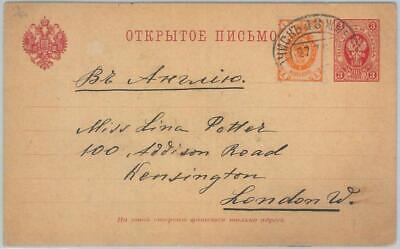 ОТКРЫТОЕ ПИСЬМО
3 3
Въ Англію.
Miss Lina Potter
100 Addison Road
Kensington
London W.
На этой сторонѣ пишется только адресъ.